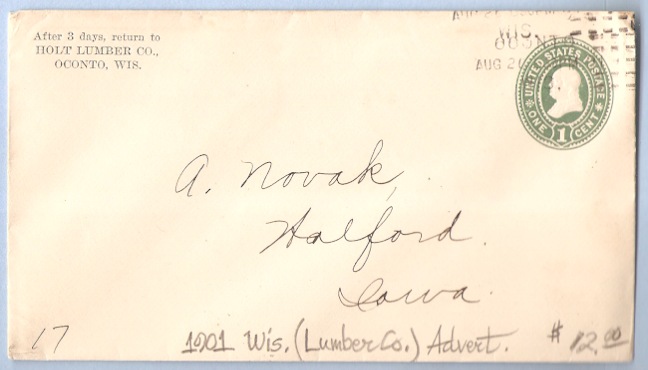 After 3 days, return to
HOLT LUMBER CO.,
OCONTO, WIS.
WIS.
AUG 2
UNITED STATES POSTAGE
1
ONE CENT
A. Novak,
Halford.
Iowa.
17
1901 Wis. (Lumber Co.) Advert. $12.00